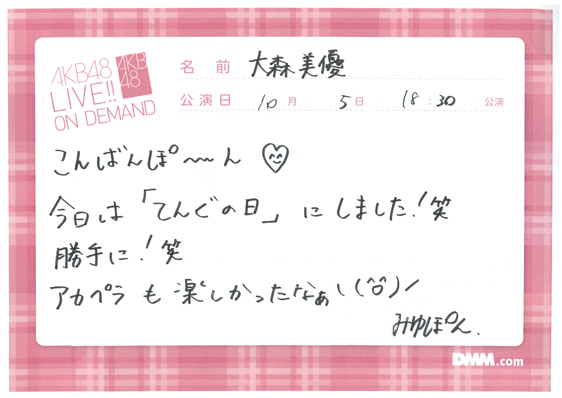 AKB48
LIVE!!
ON DEMAND
AKB
48
名前 大森美優
公演日 10月 5日 18:30 公演
こんばんぽ〜ん ♡
今日は「てんぐの日」にしました!笑
勝手に!笑
アカペラも楽しかったなぁ\(^o^)/
みゆぽん.
DMM.com